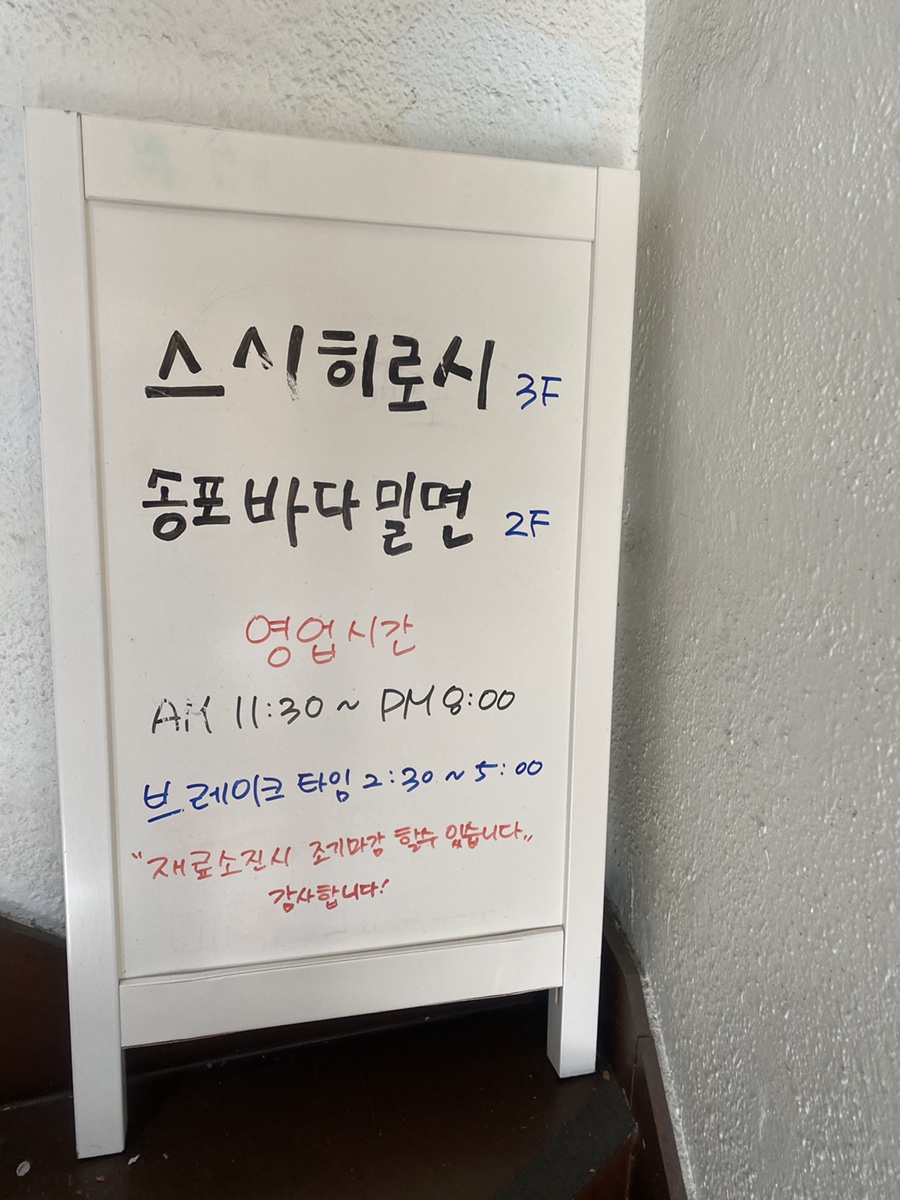 스시히로시 3F
송포바다밀면 2F
영업시간
AM 11:30 ~ PM 8:00
브레이크 타임 2:30 ~ 5:00
"재료소진시 조기마감 할수 있습니다„
감사합니다!